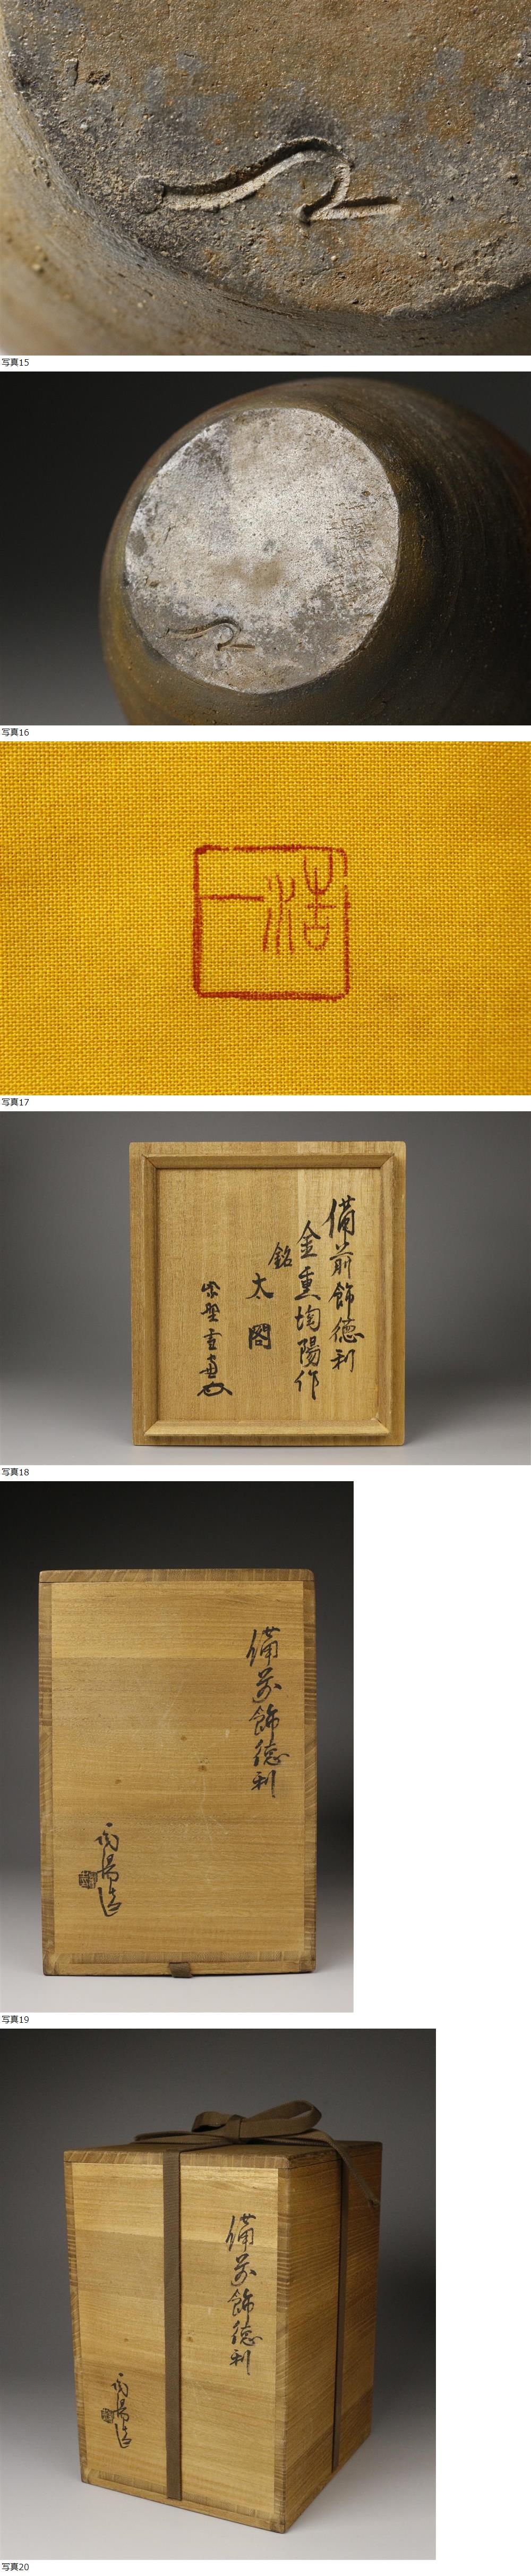 写真15
写真16
浩一
写真17
備前飾徳利
金重陶陽作
銘
太閤
写真18
備前飾徳利
陶陽造
写真19
備前飾徳利
陶陽造
写真20